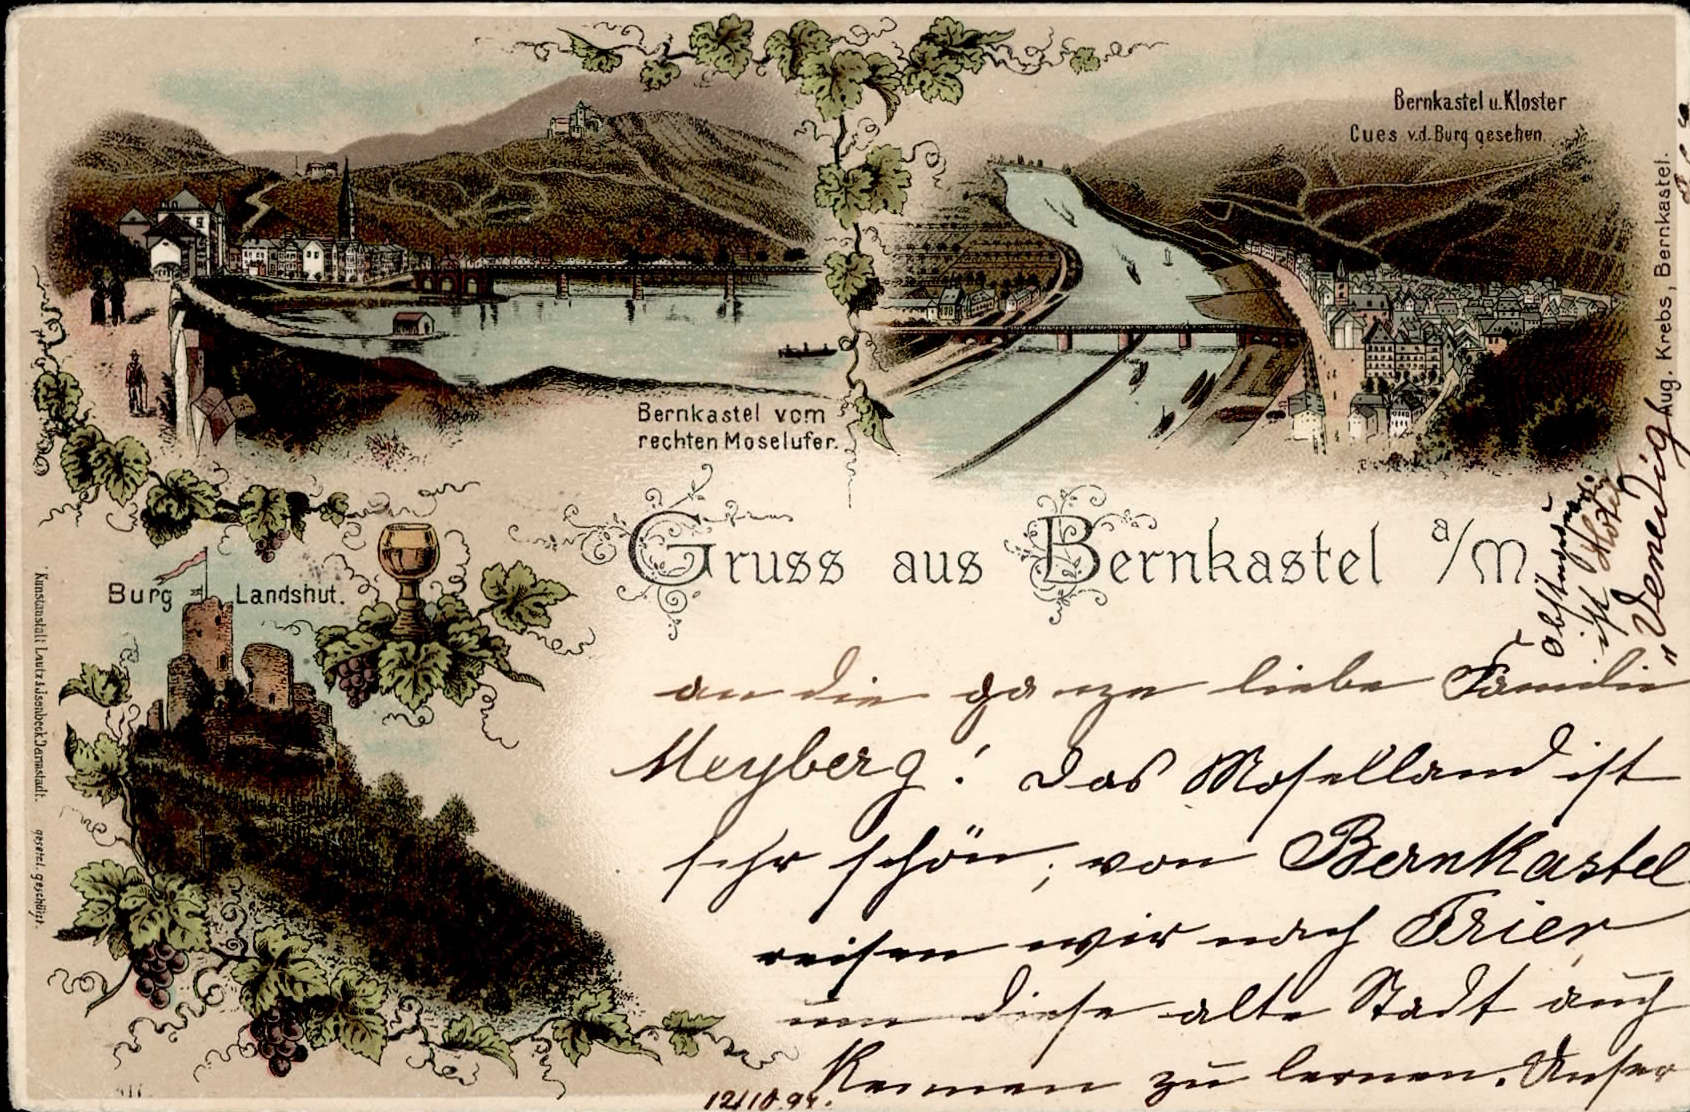 Bernkastel u. Kloster
Cues v.d. Burg gesehen.
Bernkastel vom
rechten Moselufer.
Gruss aus Bernkastel a/M
Burg Landshut.
Aug. Krebs, Bernkastel.
Kunstanstalt Lautz & Isenbeck Darmstadt. gesetzl. geschützt.
an die ganze liebe Familie
Meyberg! Das Moselland ist
sehr schön, von Bernkastel
reisen wir nach Trier,
um diese alte Stadt auch
kennen zu lernen. Unser
ist Hotel
"Venedig
12/10.97.